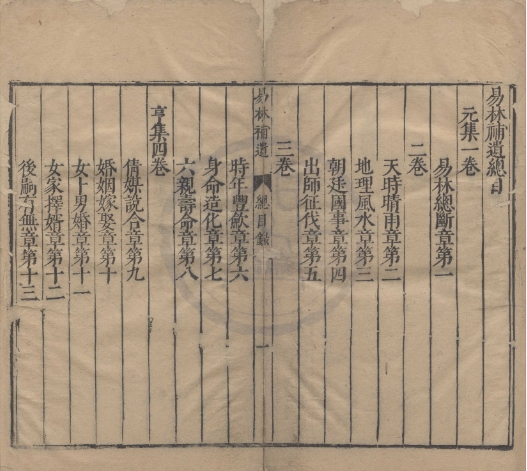 易林補遺總目
元集一卷
易林總斷章第一
二卷
天時晴雨章第二
地理風水章第三
朝廷國事章第四
出師征伐章第五
三卷
易林補遺
總目錄
一
時年豐歉章第六
身命造化章第七
六親壽命章第八
亨集四卷
倩媒說合章第九
婚姻嫁娶章第十
女卜男婚章第十一
女家擇婿章第十二
後嗣有無章第十三